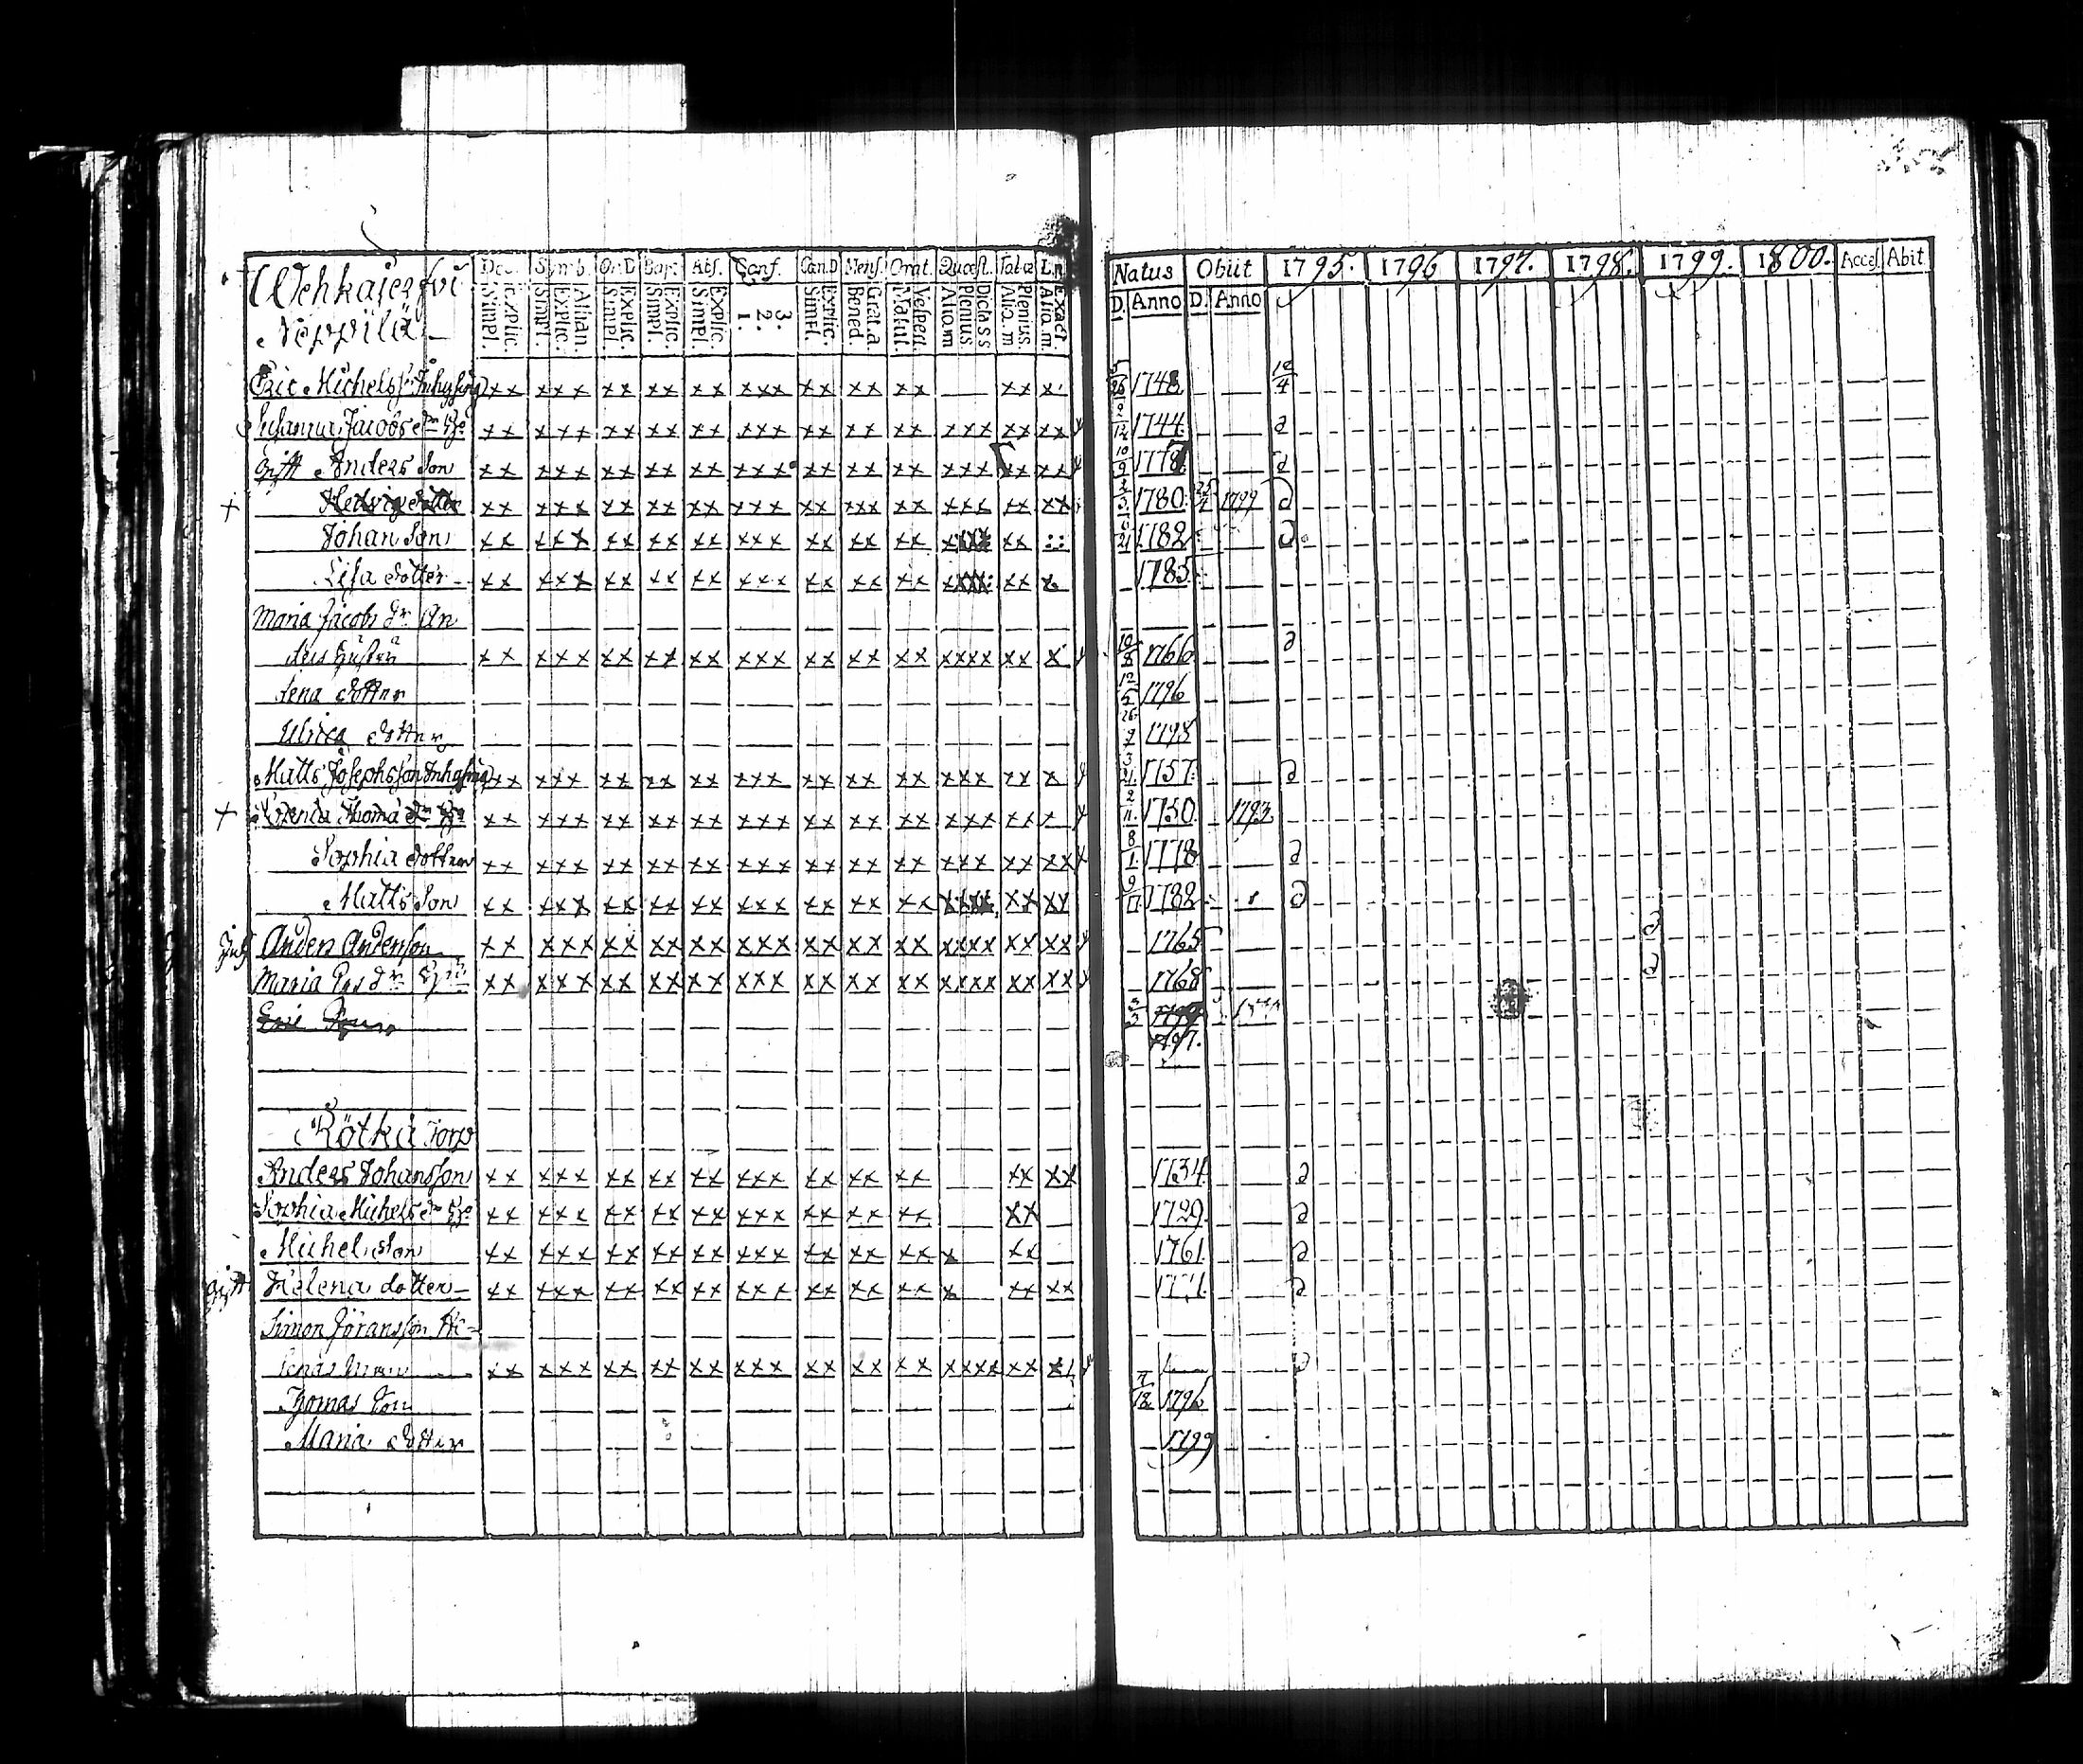 Wehkajerfvi
Neppilä
Dec. Symb. Or.D Bapt. Abs. Conf. Can.D Mens. Orat. Quæst. Tabæ L.n.
Explic. Simpl. Athan. Explic. Simpl. Explic. Simpl. Explic. Simpl. Explic. Simpl. 3. 2. 1. Explic. Simpl. Grat.a. Bened. Vesperi. Matut. Dicta S S Plenius. Aliq.m Plenius Aliq.m Exact. Aliq.m.
Natus Obiit 1795. 1796 1797. 1798. 1799. 1800. Acces. Abit
D. Anno D. Anno
Eric Michelss. Inhysing xx xxx xx xx xx xxx xx xx xx xx x 5/26 1748. 12/4
Susanna Jacobs dr xx xxx xx xx xx xxx xx xx xx xxx xx xx 1744
Gift Anders Son xx xxx xx xx xx xxx xx xx xx xxx xx xx 10/9 1778
+ Hedvig dotter xx xxx xx xx xx xxx xx xxx xx xxx xx xx 1780. 1799
Johan Son xx xxx xx xx xx xxx xx xx xx xx 1782
Lisa dotter xx xxx xx xx xx xxx xx xx xx xx x 1785.
Maria Jacobs dr An
ders hustru xx xxx xx xx xx xxx xx xx xx xxxx xx x 10/8 1766
Lena dotter 12/5 1796
Ulrica dotter 26/9
Matts Josephsson Inhysing xx xxx xx xx xx xxx xx xx xx xxx xx x 3/21 1757.
+ Thoma dr xx xxx xx xx xx xxx xx xx xx xxx xx x 2/11 1750. 1793
Sophia dotter xx xxx xx xx xx xxx xx xx xx xxx xx xx 8/1 1778
Matts Son xx xxx xx xx xx xxx xx xx xx xxxx xx xx 1782
Anders Anderson xx xxx xx xx xx xxx xx xx xx xxxx xx xx 1765
Maria dr xx xxx xx xx xx xxx xx xx xx xxxx xx xx 1768
1797.
Rötkä Torp
Anders Johansson xx xxx xx xx xx xxx xx xx xx xx xx 1734.
Sophia Michels dr xx xxx xx xx xx xxx xx xx xx xx 1729.
Michel Son xx xxx xx xx xx xxx xx xx xx x xx 1761.
gift Helena dotter xx xxx xx xx xx xxx xx xx xx x xx xx
Simon Göransson He-
lenas xx xxx xx xx xx xxx xx xx xx xxxx xx
Thomas Son 1796
Maria dotter 1799